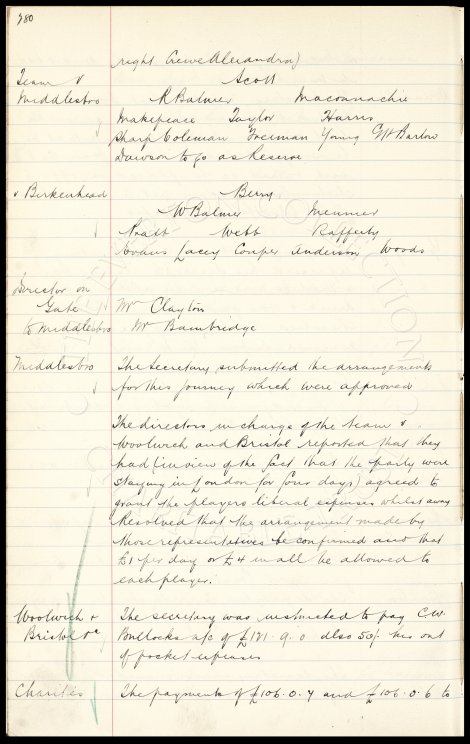 280
right Crewe Alexandra)
Team v Scott
Middlesbro R Balmer Maconnachie
Makepeace Taylor Harris
Sharp Coleman Freeman Young G H Barlow
Dawson to go as Reserve
v Birkenhead Berry
W Balmer Meunier
Pratt Webb Rafferty
Evans Lacey Couper Anderson Woods
Director on
Gate Mr Clayton
to Middlesbro Mr Bainbridge
Middlesbro The Secretary submitted the arrangements
for this journey which were approved
The directors in charge of the team v
Woolwich and Bristol reported that they
had (in view of the fact that the party were
staying in London for four days) agreed to
grant the players liberal expenses whilst away
Resolved that the arrangement made by
those representatives be confirmed and that
£1 per day or £4 in all be allowed to
each player.
Woolwich & The secretary was instructed to pay C.W.
Bristol Bullocks a/c of £121.9.0 also 50/- his out
of pocket expenses
Charities The payments of £106.0.7 and £106.0.6 to